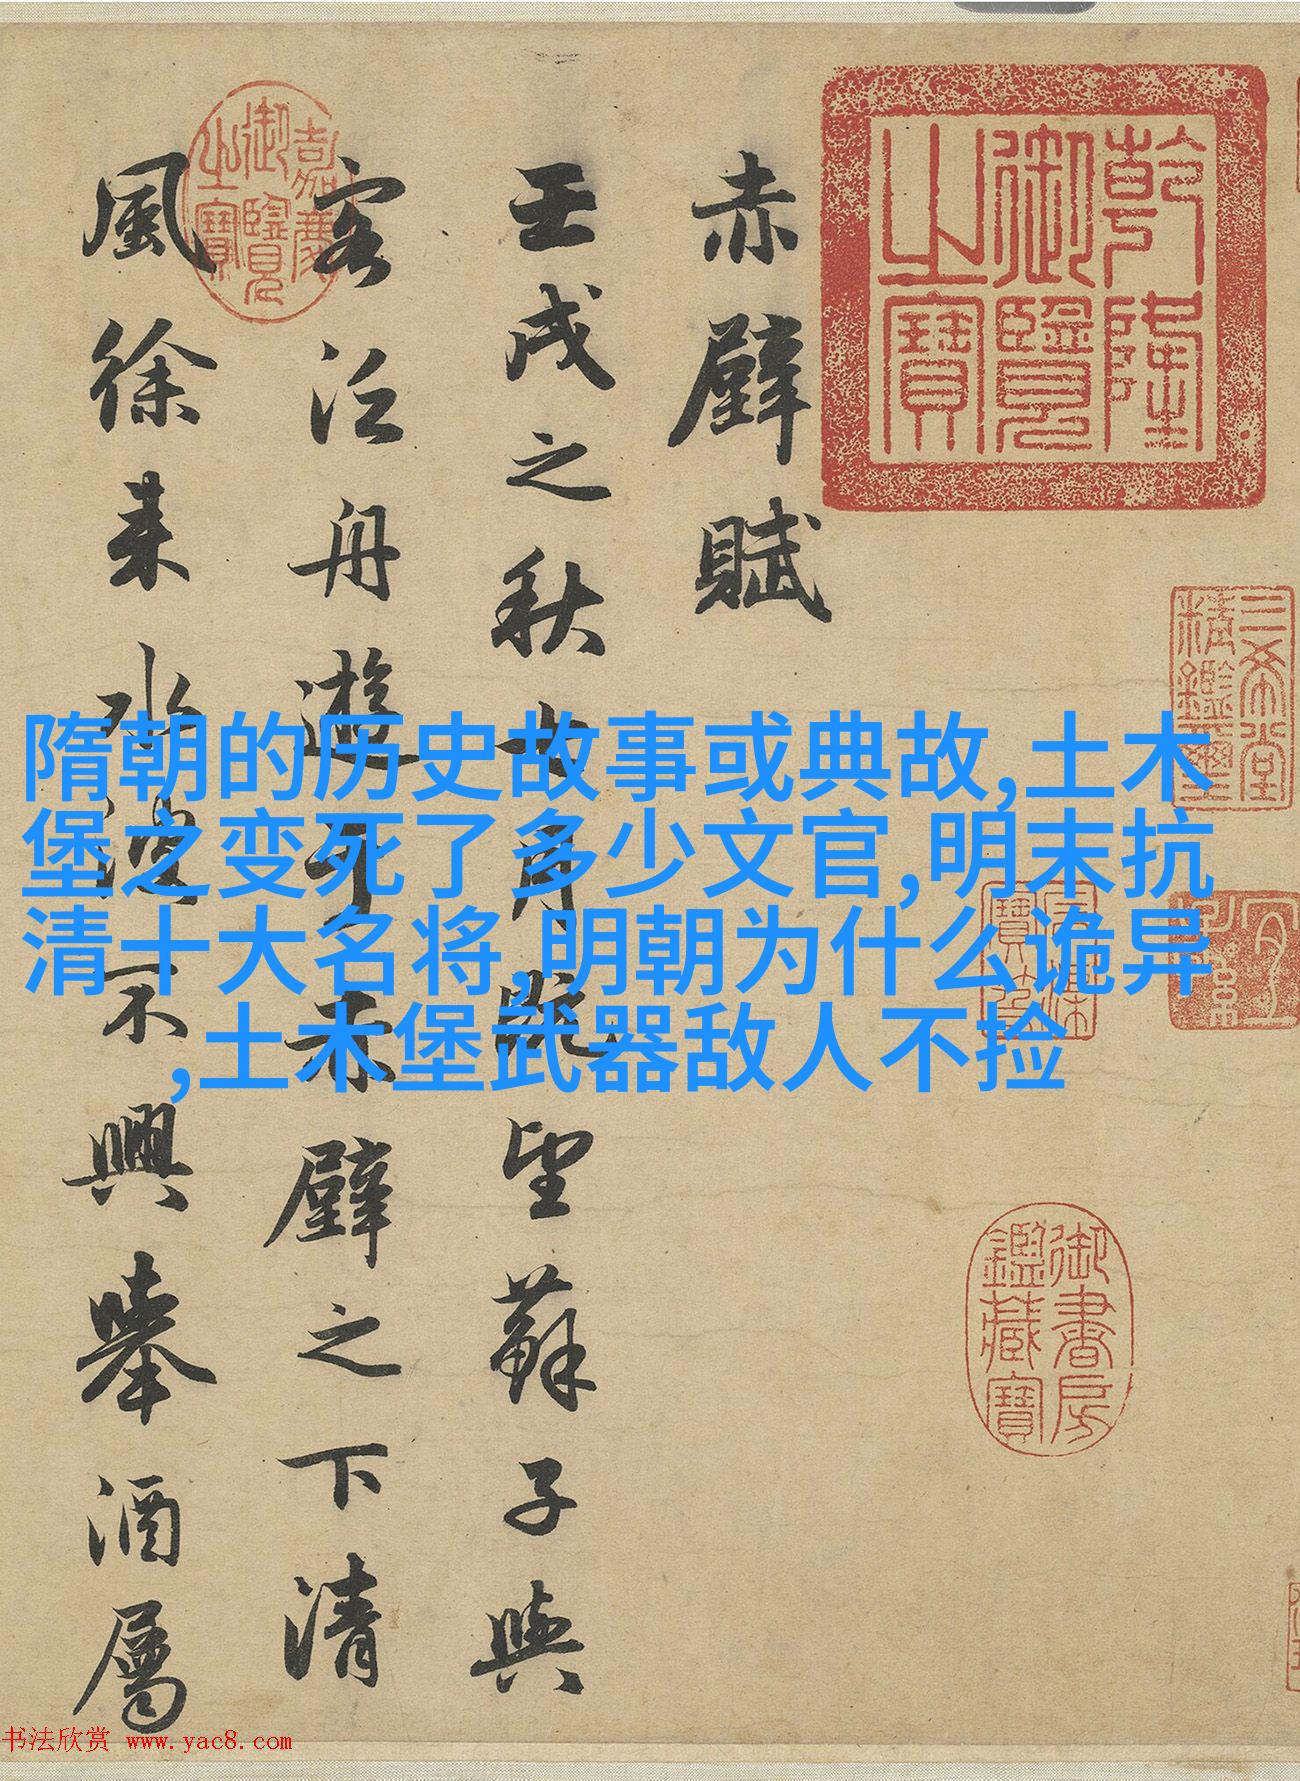 乾隆御覽之寶
三希堂精鑑璽
宜子孫
石渠寶笈
御書房鑑藏寶
赤壁賦
壬戌之秋七月既望蘇子與
客泛舟遊于赤壁之下清
風徐来水波不興舉酒屬
嘉慶御覽之寶
隋朝的历史故事或典故,土木
堡之变死了多少文官,明末抗
清十大名将,明朝为什么诡异
,土木堡武器敌人不捡
书法欣赏 www.yac8.com